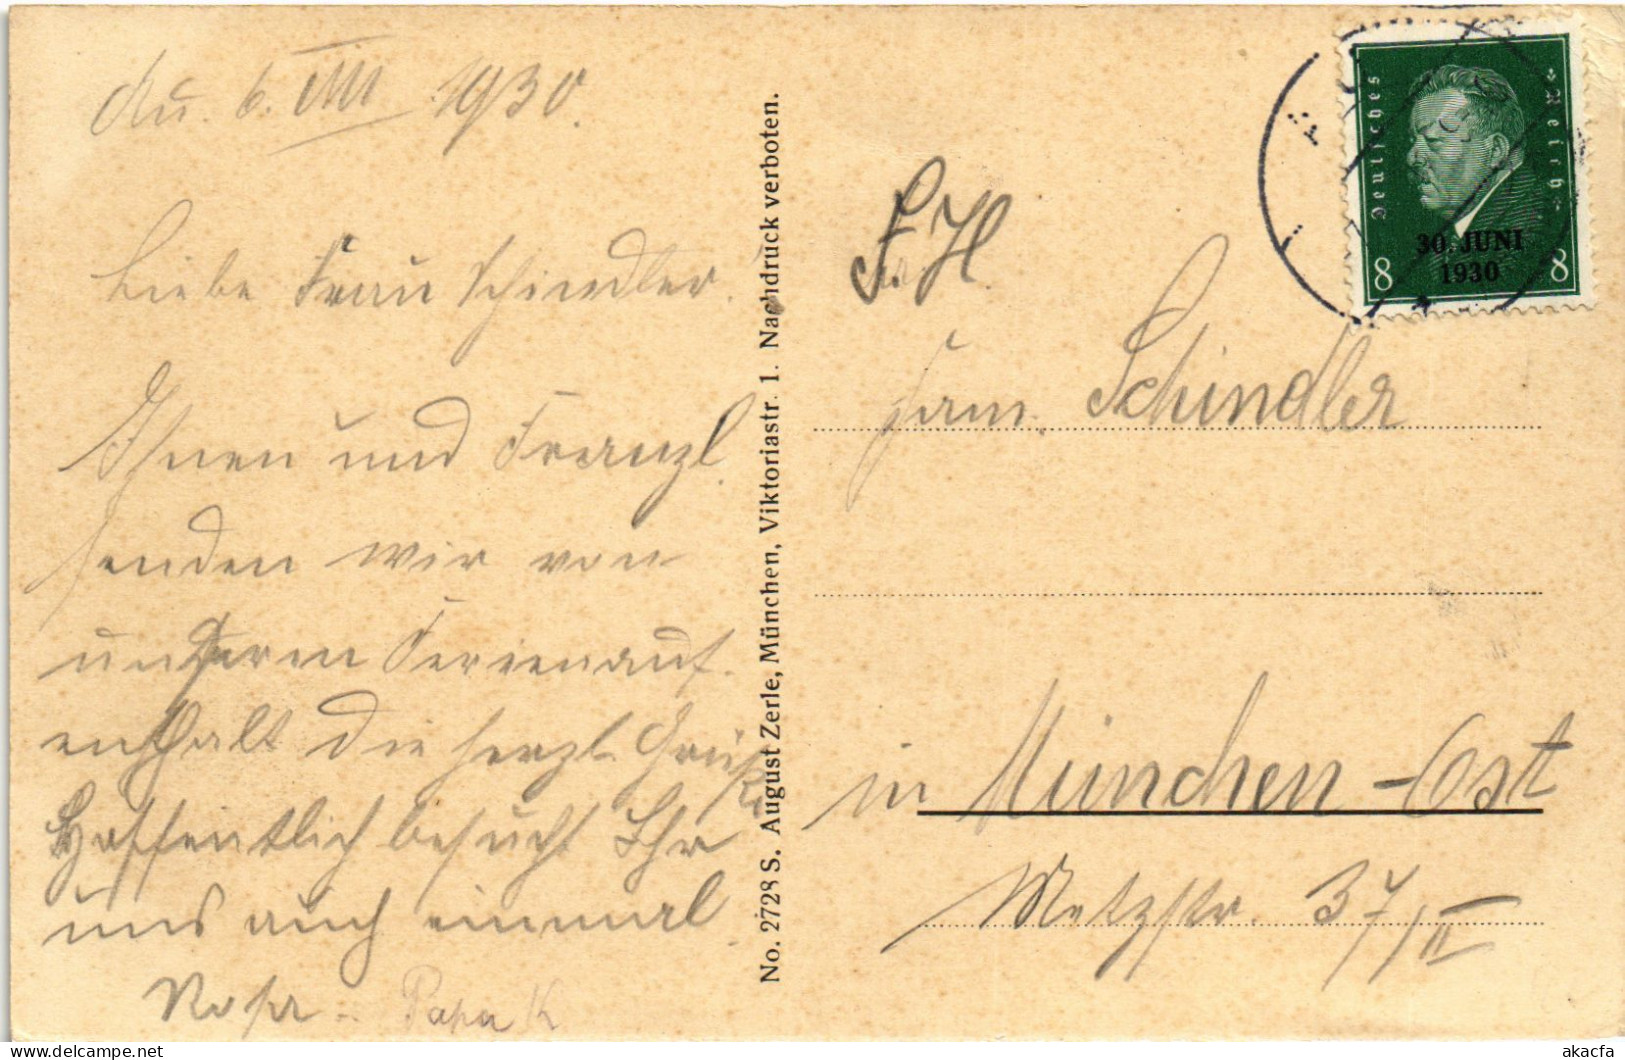 6. VIII 1930.
Liebe Frau Schindler.
Ihnen und Franzl
senden wir von
unserm Ferienauf-
enthalt die herzl. Grüße
Hoffentlich besucht Ihr
uns auch einmal.
Papa K
No. 2728 S. August Zerle, München, Viktoriastr. 1. Nachdruck verboten.
Deutsches Reich
30. JUNI
1930
8 8
F. H.
Fam. Schindler
in München-Ost
Metzstr. 37/II
akacfa